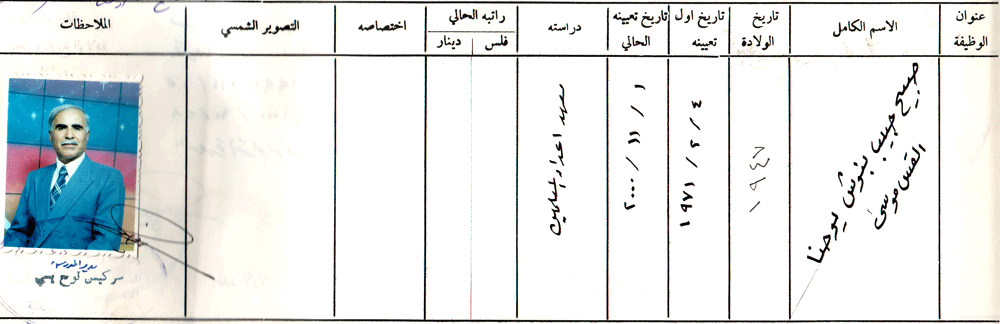 عنوان الوظيفة
الاسم الكامل
تاريخ الولادة
تاريخ اول تعيينه
تاريخ تعيينه الحالي
دراسته
راتبه الحالي
فلس
دينار
اختصاصه
التصوير الشمسي
الملاحظات
حبيب بنوش يوحنا
القس موسى
١٩٤٦
٤ / ٢ / ١٩٧١
١ / ١١ / ٢٠٠٠
معهد اعداد المعلمين
مدير المدرسة
سركيس لوح